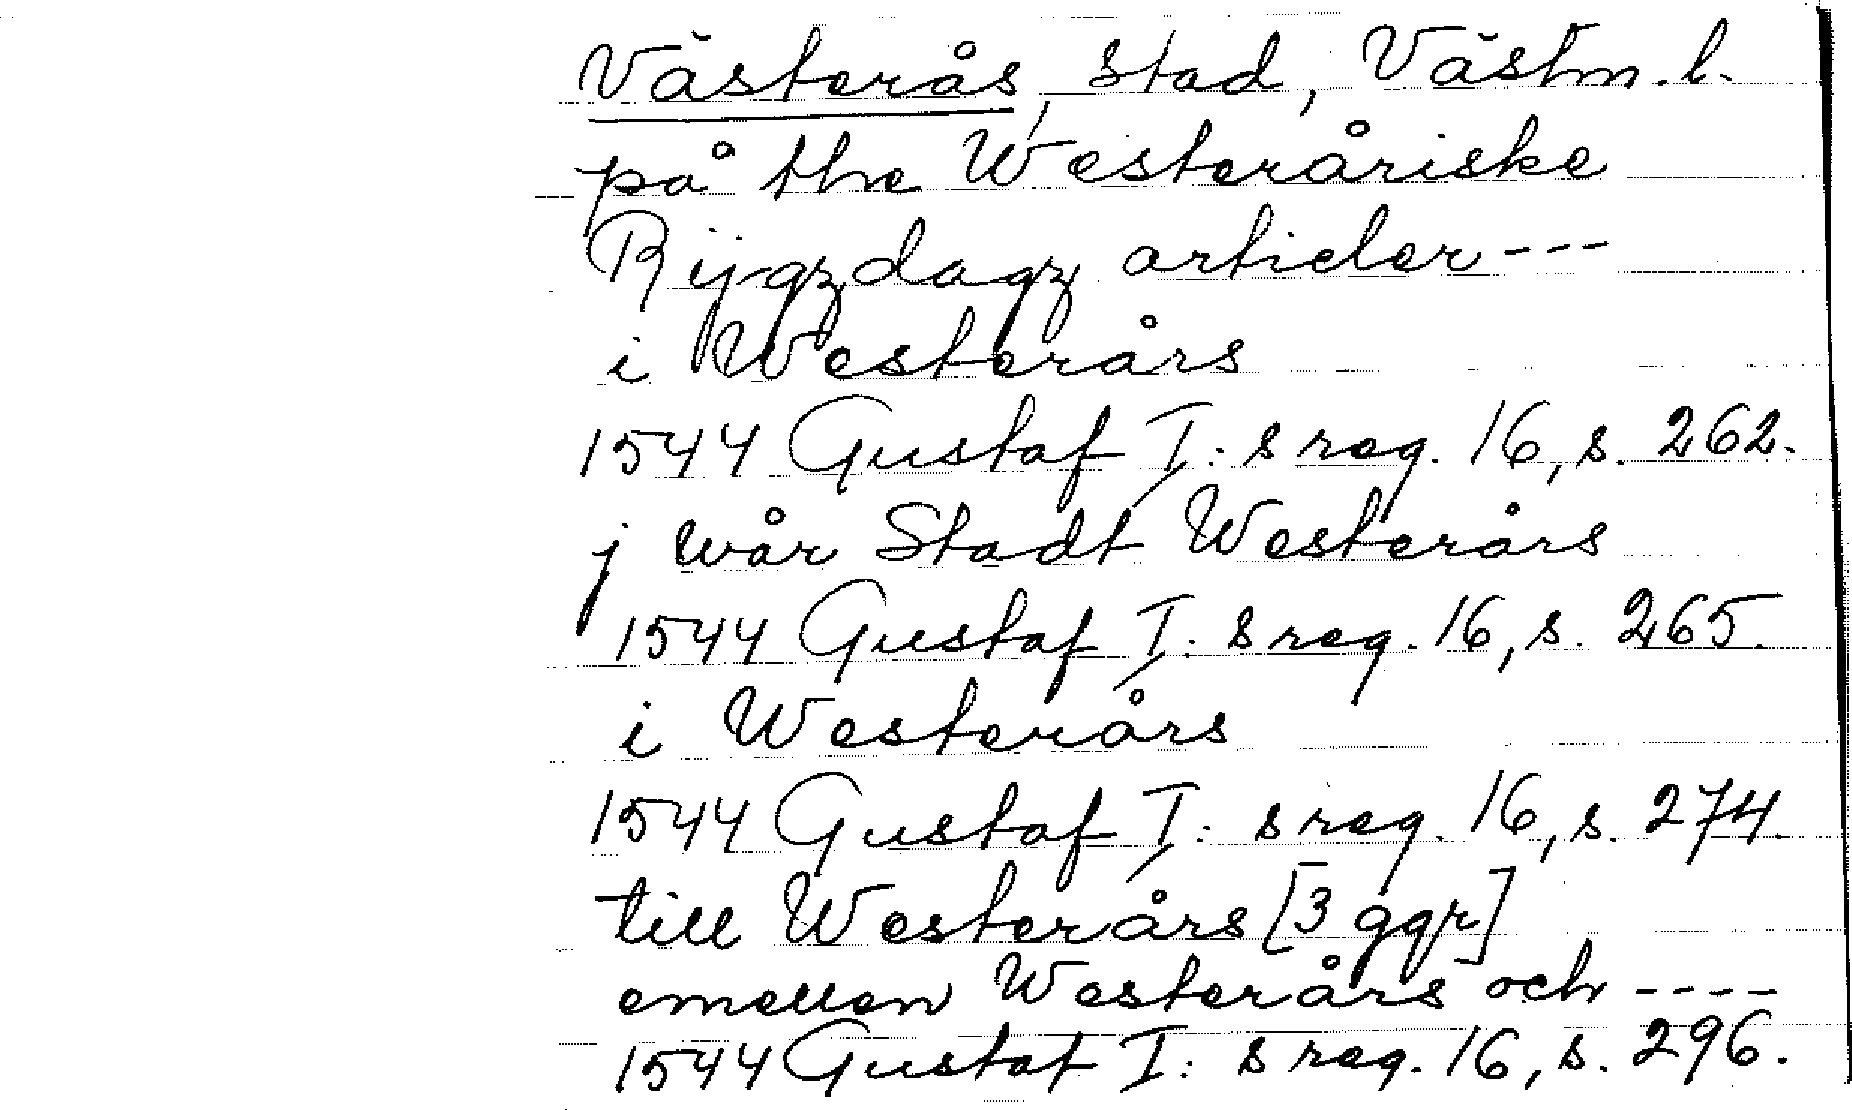 Västerås, stad, Västm. l.
på the Westeråriske
Rijgzdagz articler - - -
i Westerårs
1544 Gustaf I: s reg. 16, s. 262.
j wår Stadt Westerårs
1544 Gustaf I: s reg. 16, s. 265.
i Westerårs
1544 Gustaf I: s reg. 16, s. 274.
till Westerårs [3 ggr]
emellen Westerårs och - - - -
1544 Gustaf I: s reg. 16, s. 296.